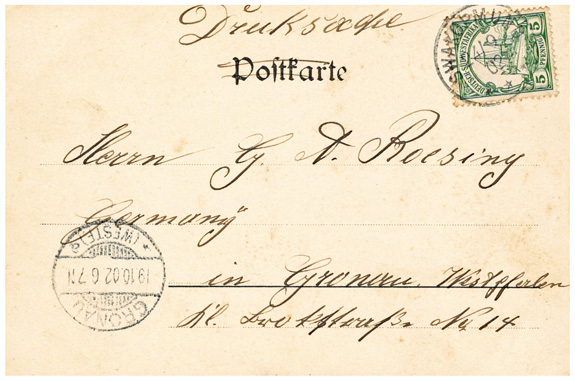 Drucksache
Postkarte
SWAKOPMUND
DEUTSCH-SÜDWESTAFRIKA
5 PFENNIG 5
Herrn G. A. Roesing
Germany
in Gronau. Westpfalen
Kl. Brockstraße No 14
GRONAU
19.10.02. 6-7 N
* (WESTF.) a